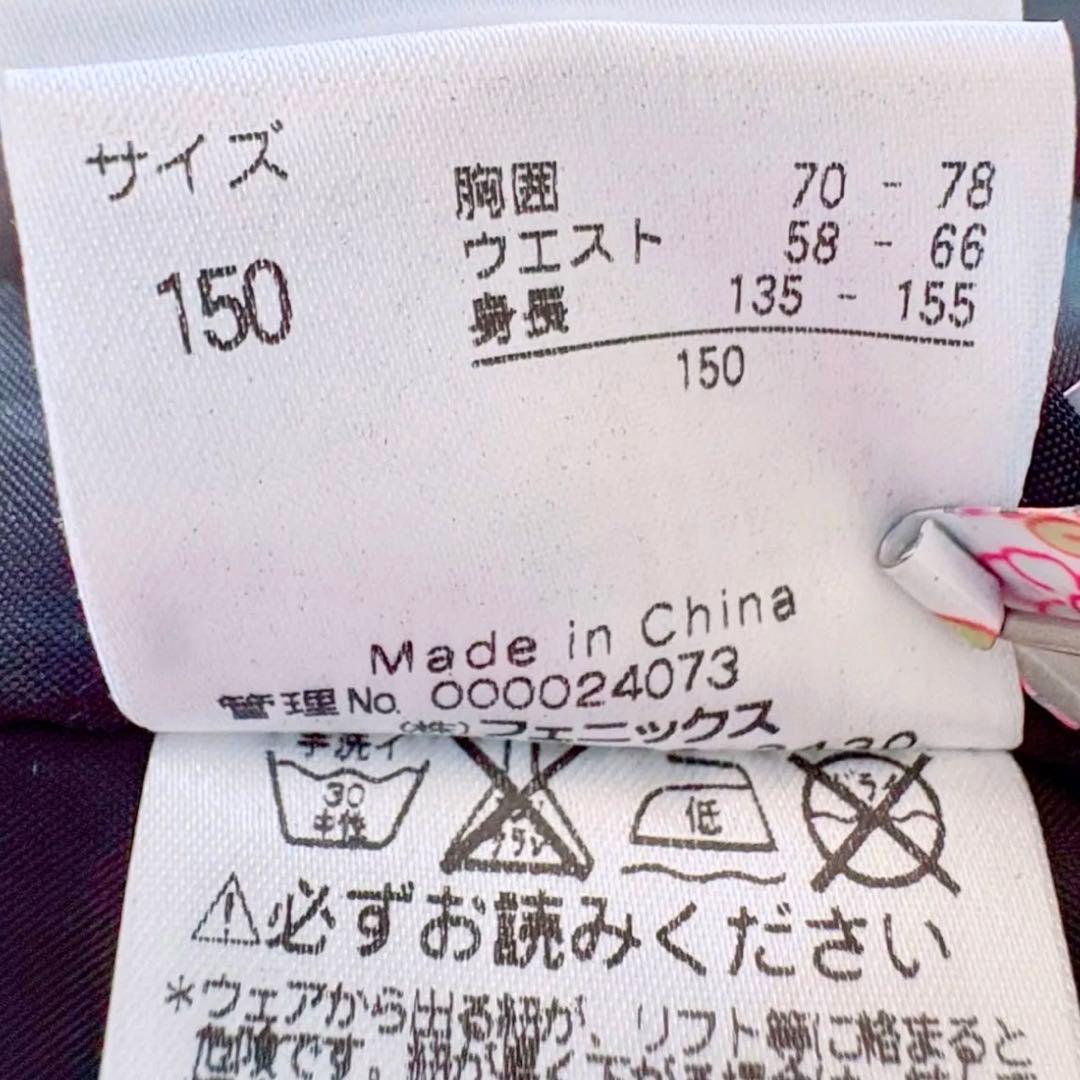 サイズ
150
胸囲 70 - 78
ウエスト 58 - 66
身長 135 - 155
150
Made in China
管理No. 000024073
(株)フェニックス
手洗イ
30
中性
低
ドライ
⚠必ずお読みください
*ウェアから出る紐が、リフト等に絡まると
危険です。